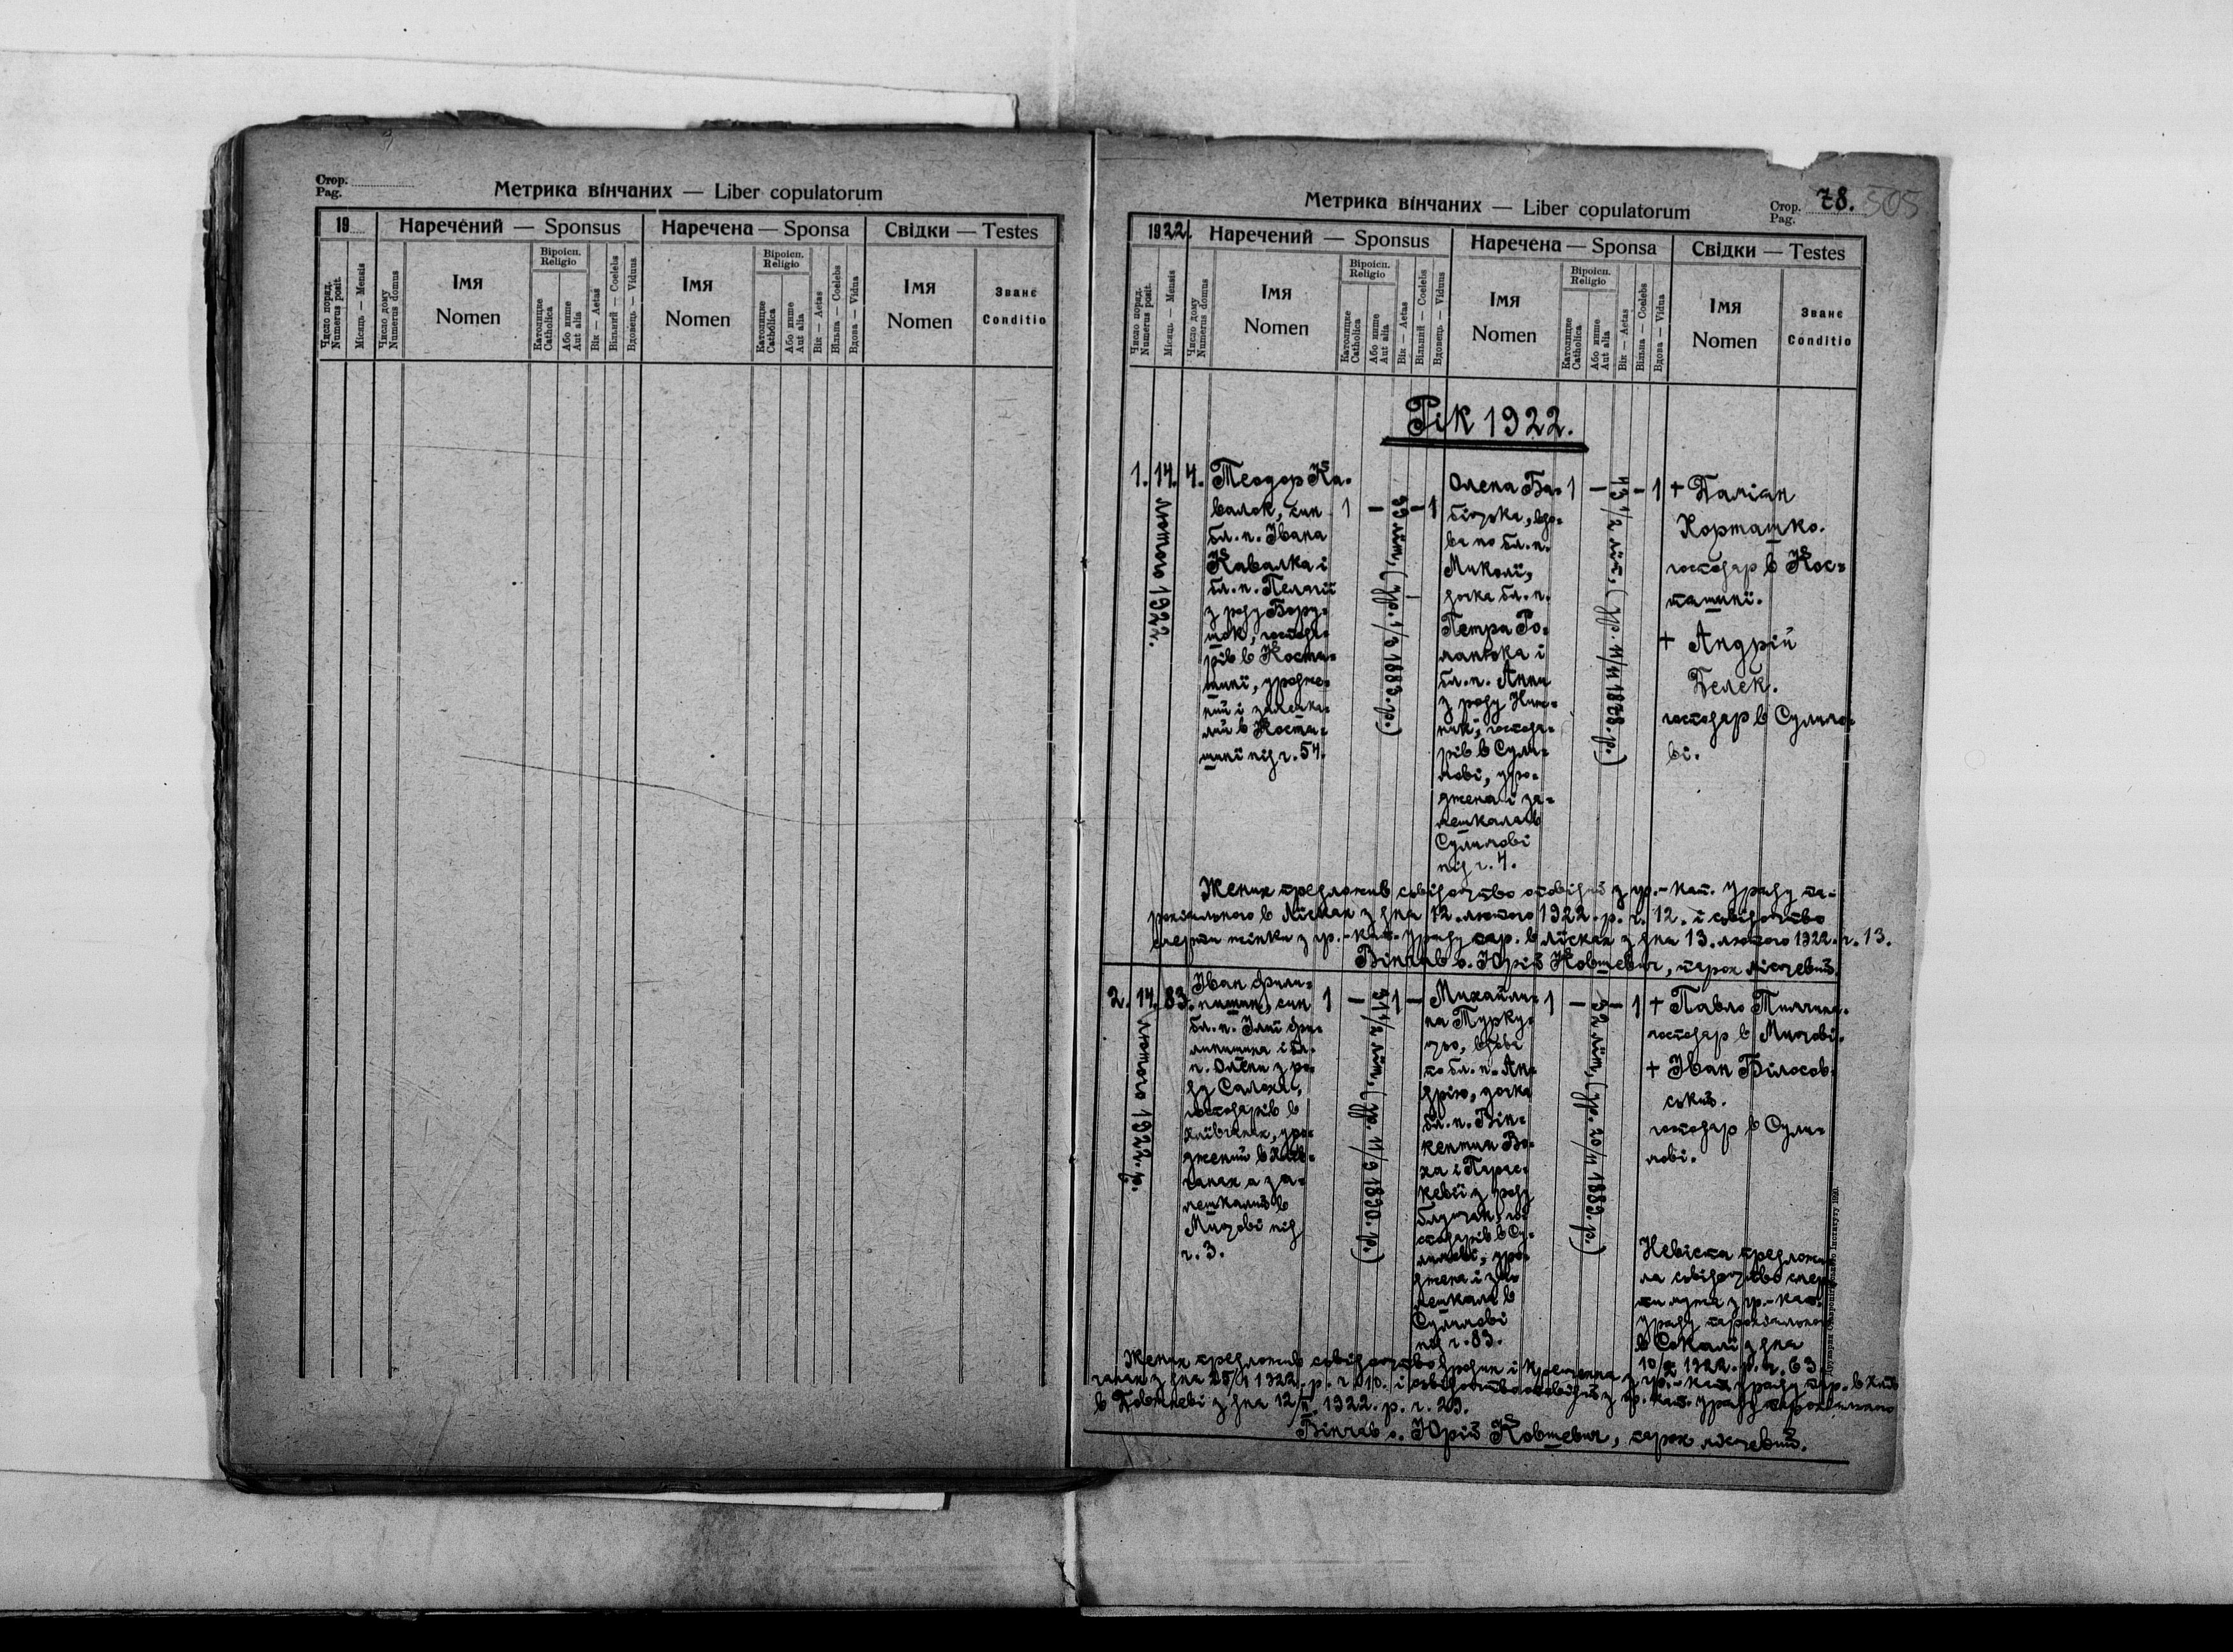 Стор.
Pag.
Метрика вінчаних — Liber copulatorum
19
Наречений — Sponsus
Наречена — Sponsa
Свідки — Testes
Число поряд.
Numerus posit.
Місяць — Mensis
Число дому
Numerus domus
Імя
Nomen
Віроісп.
Religio
Католицке
Catholica
Або инше
Aut alia
Вік — Aetas
Вільний — Coelebs
Вдовець — Viduus
Імя
Nomen
Віроісп.
Religio
Католицке
Catholica
Або инше
Aut alia
Вік — Aetas
Вільна — Coelebs
Вдова — Vidua
Імя
Nomen
Званє
Conditio
Метрика вінчаних — Liber copulatorum
Стор.
Pag.
78.
505
1922.
Наречений — Sponsus
Наречена — Sponsa
Свідки — Testes
Число поряд.
Numerus posit.
Місяць — Mensis
Число дому
Numerus domus
Імя
Nomen
Віроісп.
Religio
Католицке
Catholica
Або инше
Aut alia
Вік — Aetas
Вільний — Coelebs
Вдовець — Viduus
Імя
Nomen
Віроісп.
Religio
Католицке
Catholica
Або инше
Aut alia
Вік — Aetas
Вільна — Coelebs
Вдова — Vidua
Імя
Nomen
Званє
Conditio
Рік 1922.
1.
14.
лютого 1922.
4.
Теодор Ка-
валок, син
бл. п. Івана
Кавалка і
бл. п. Пелагії
з роду Бору-
господа-
рів в Коста-
шині, уродже-
ний і замешка-
лий в Коста-
шині під ч. 54.
1 — — 1
39 літ, (ур. 1883. р.)
Олена Ба-
вдо-
ва по бл. п.
Миколі,
дочка бл. п.
Петра Ро-
манюка і
бл. п. Анни
з роду
господа-
рів в Сули-
мові, уро-
джена і за-
мешкала в
Сулимові
під ч. 4.
1 — — 1
43 1/2 літ, (ур. 11/11 1878. р.)
+ Даміан
Корташко.
господар в Кос-
ташині.
+ Андрій
Белек.
господар в Сулимо-
ві.
Жених предложив свідоцтво оповідий з гр.-кат. Уряду па-
рохіального в Лісках з дня 12. лютого 1922. р. ч. 12. і свідоцтво
смерти жінки з гр.-кат. Уряду пар. в Лісках з дня 13. лютого 1922. ч. 13.
Вінчав о. Юрій Ковшевич, парох місцевий.
2.
14.
лютого 1922. р.
83.
Іван Фили-
син
бл. п. Ілії Фи-
і бл.
п. Олени з ро-
ду
господарів в
Хлівчанах, уро-
джений в Хлів-
чанах а за-
мешкалий в
Мицові під
ч. 3.
1 — 1 —
31 1/2 літ, (ур. 11/9 1890. р.)
Михайли-
на Турку-
вдова
по бл. п. Ан-
дрію, дочка
бл. п. Він-
кентия Во-
ха і Парас-
кевії з роду
го-
сподарів в Су-
лимові, уро-
джена і за-
мешкала в
Сулимові
під ч. 83.
1 — — 1
32 літ, (ур. 20/11 1889. р.)
+ Павло
господар в Мицові.
+ Іван Білосов-
ський.
господар в Сули-
мові.
Невіста предложи-
ла свідоцтво смер-
ти мужа з гр.-кат.
Уряду парохіального
в Сокалі з дня
10/2 1922. р. ч. 63.
Жених предложив свідоцтво уродин і крещення з гр.-кат. Уряду пар. в Хлів-
чанах з дня 25/1 1922. р. ч. 10. і свідоцтво оповідий з гр. кат. Уряду парохіяльного
в Довжневі з дня 12/II. 1922. р. ч. 29.
Вінчав о. Юрій Ковшевич, парох місцевий.